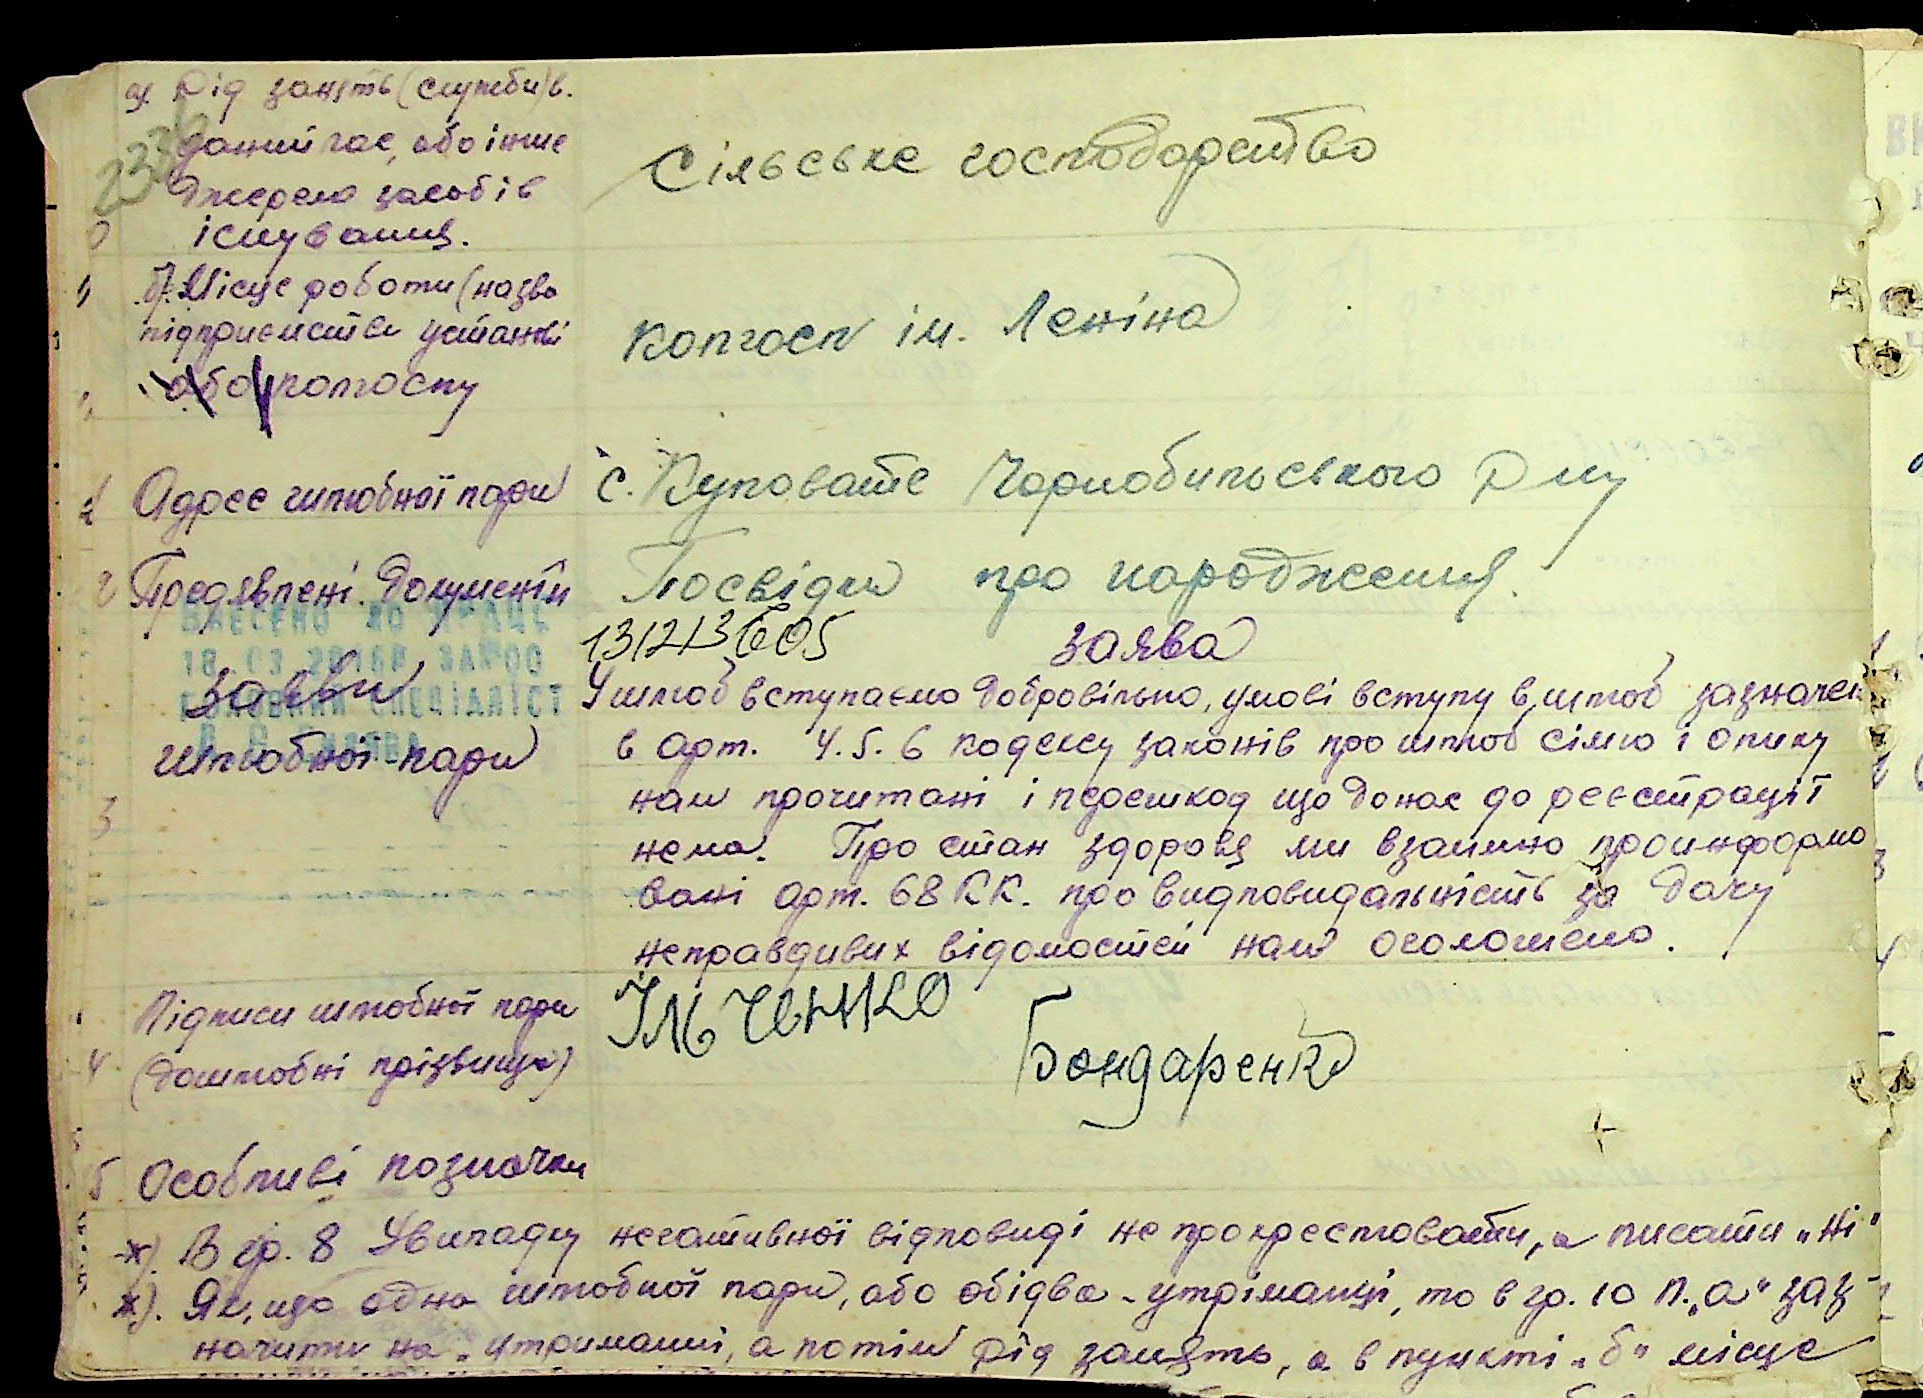 а) Рід занять (служби) в.
даний час, або інше
джерело засобів
існування.
Сільське господарство
б) Місце роботи (назва
підприємства установи
або колгоспу
колгосп ім. Леніна
Адрес шлюбної пари
с. Куповате Чорнобильського р-ну
Предявлені документи
Посвідки про народження.
ВНЕСЕНО ДО
13121
заява
заяви
шлюбної пари
СПЕЦІАЛІСТ
У шлюб вступаємо добровільно, умові вступу в шлюб зазначен
в арт. 4.5.6 кодексу законів про шлюб сімю і опіку
нам прочитані і перешкод що до нас до реєстрації
нема. Про стан здоровя ми взаимно проинформо
вані арт. 68 КК. про видповидальність за дачу
неправдивих відомостей нам оголошено.
Підписи шлюбної пари
(дошлюбні прізвища)
Ільченко
Бондаренко
5 Особливі позначки
*). В гр. 8 У випадку негативної відповиді не прокреслювати, а писати „ні"
*). Як, що одна шлюбної пари, або обідва - утріманці, то в гр. 10 п. „а" заз-
начити на „утриманні, а потім рід занять, а в пункті „б" місце